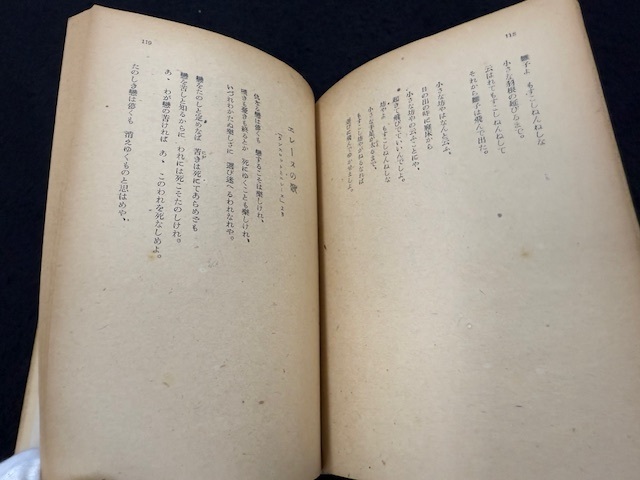 118
雛子よ もすこしねんねしな
小さな羽根の延びるまで。
云はれてもすこしねんねして
それから雛子は飛んで出た。
小さな坊やはなんと云ふ、
日の出の時に寝床から
小さな坊やの云ふことにや、
起きて飛びでていいんでしよ。
坊やよ もすこしねんねしな
小さな手足が太るまで、
もすこし坊やがねるなれば
119
エレーヌの歌
(ランスロットとエレーヌ)より
仇なる戀は儚くも 戀することは楽しけれ、
嘆きも憂きも終るとか 死にゆくことも樂しけれ、
いづれわかたぬ樂しさに 選び迷へるわれなれや。
戀をたのしと定めなば 苦きは死にてあらめさも
戀を苦しと知るからに われには死こそたのしけれ。
あゝ わが戀の苦ければ あゝ このわれを死なしめよ。
たのしき戀は儚くも 消えゆくものと思はめや、